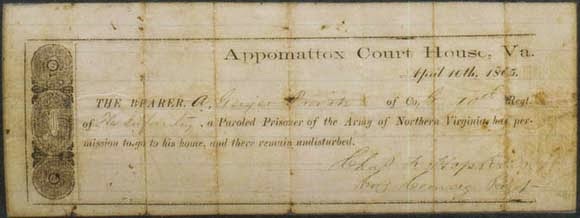 Appomattox Court House, Va.
April 10th, 1865.
THE BEARER, A. of Co. 10th Regt.
of Fla Infantry, a Paroled Prisoner of the Army of Northern Virginia, has per-
mission to go to his home, and there remain undisturbed.